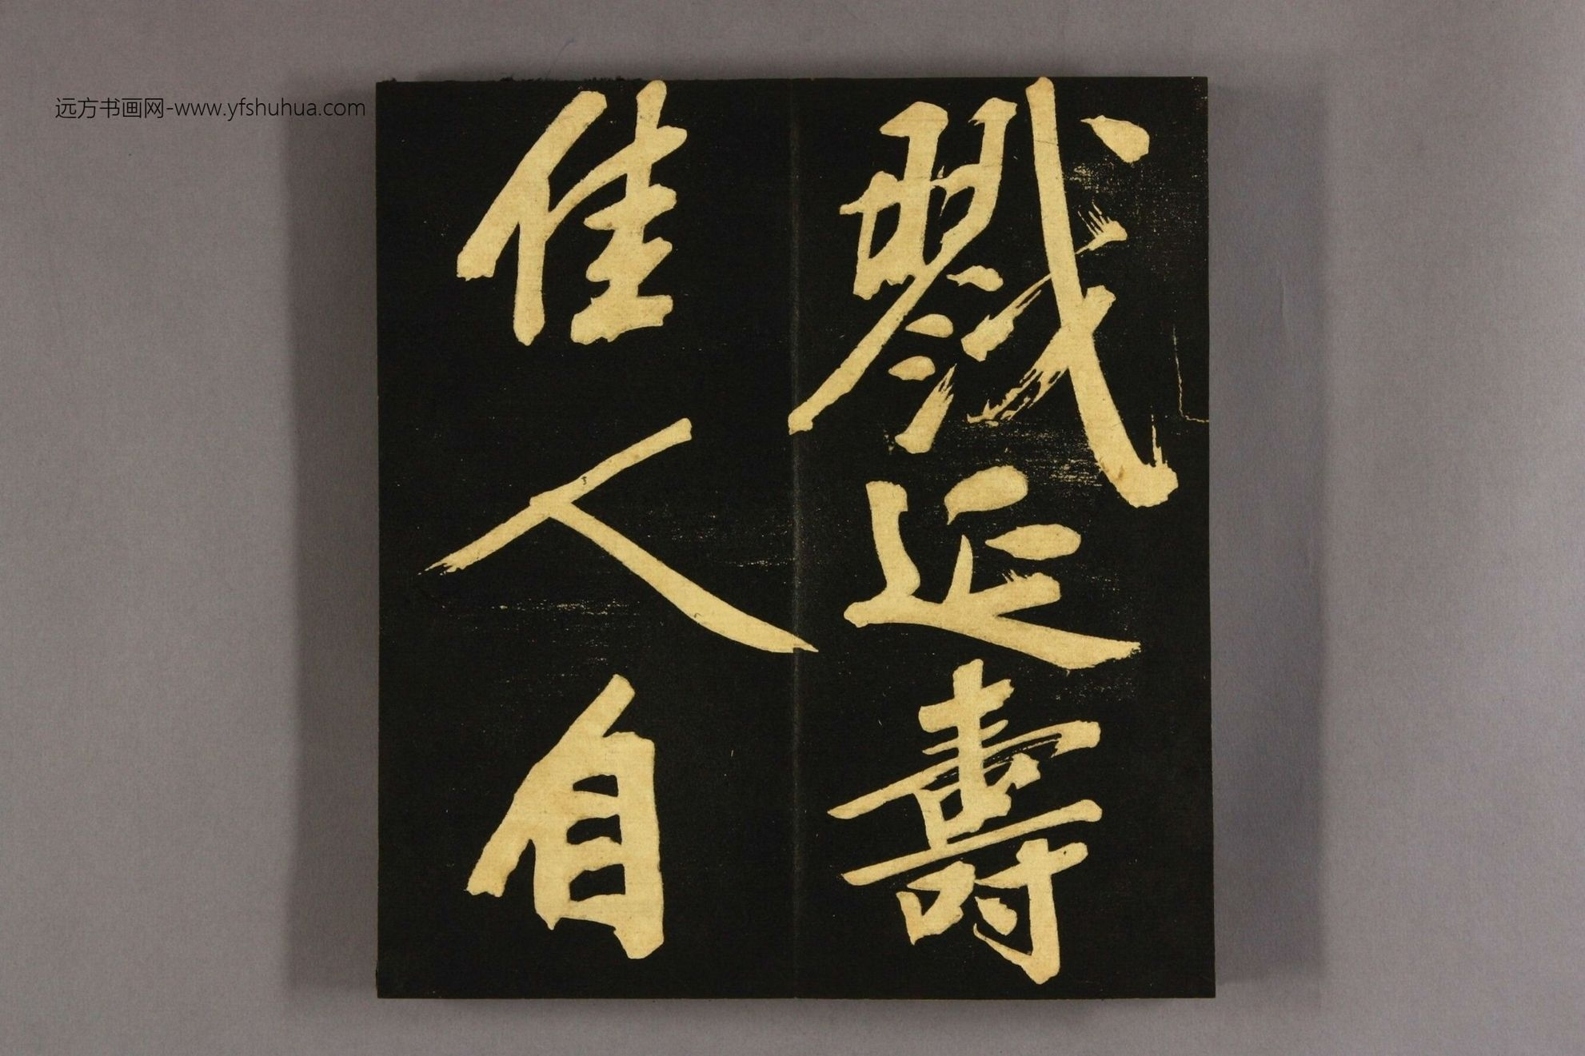 远方书画网-www.yfshuhua.com
戮延壽
佳人自